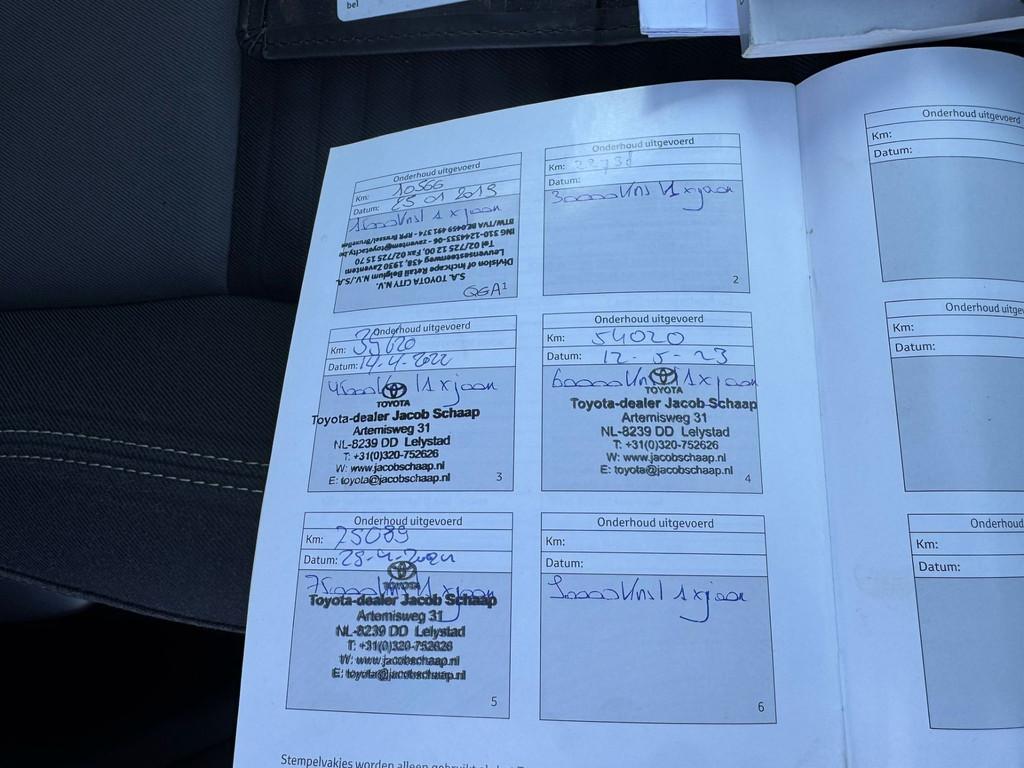 bel
Onderhoud uitgevoerd
Km: 10566
Datum: 25 01 2019
15000 km / 1 x jaar
BTW/TVA BE.0459 491 374 - RPR Brussel/Bruxelles
ING 310-1244333-06 - zaventem@toyotacity.be
Tel 02/725 12 00, Fax 02/725 15 70
Leuvensesteenweg 438, 1930 Zaventem
Division of Inchcape Retail Belgium N.V./S.A.
S.A. TOYOTA CITY N.V.
QGA1
Onderhoud uitgevoerd
Km:
Datum:
30000 km / 1 x jaar
2
Onderhoud uitgevoerd
Km:
Datum: 14-4-2022
45000 km / 1 x jaar
TOYOTA
Toyota-dealer Jacob Schaap
Artemisweg 31
NL-8239 DD Lelystad
T: +31(0)320-752626
W: www.jacobschaap.nl
E: toyota@jacobschaap.nl
3
Onderhoud uitgevoerd
Km: 54020
Datum: 12-5-23
60000 km / 1 x jaar
TOYOTA
Toyota-dealer Jacob Schaap
Artemisweg 31
NL-8239 DD Lelystad
T: +31(0)320-752626
W: www.jacobschaap.nl
E: toyota@jacobschaap.nl
4
Onderhoud uitgevoerd
Km: 75089
Datum: 25-4-2024
75000 km / 1 x jaar
TOYOTA
Toyota-dealer Jacob Schaap
Artemisweg 31
NL-8239 DD Lelystad
T: +31(0)320-752626
W: www.jacobschaap.nl
E: toyota@jacobschaap.nl
5
Onderhoud uitgevoerd
Km:
Datum:
90000 km / 1 x jaar
6
Stempelvakjes worden alleen gebruikt
Onderhoud uitgevoerd
Km:
Datum:
Onderhoud uitge
Km:
Datum:
Onderhoud
Km:
Datum: